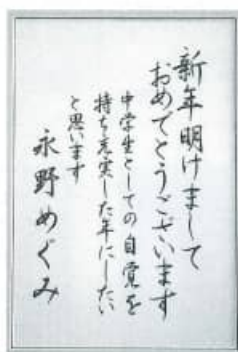 新年明けまして
おめでとうございます
中学生としての自覚を
持ち充実した年にしたい
と思います
永野めぐみ